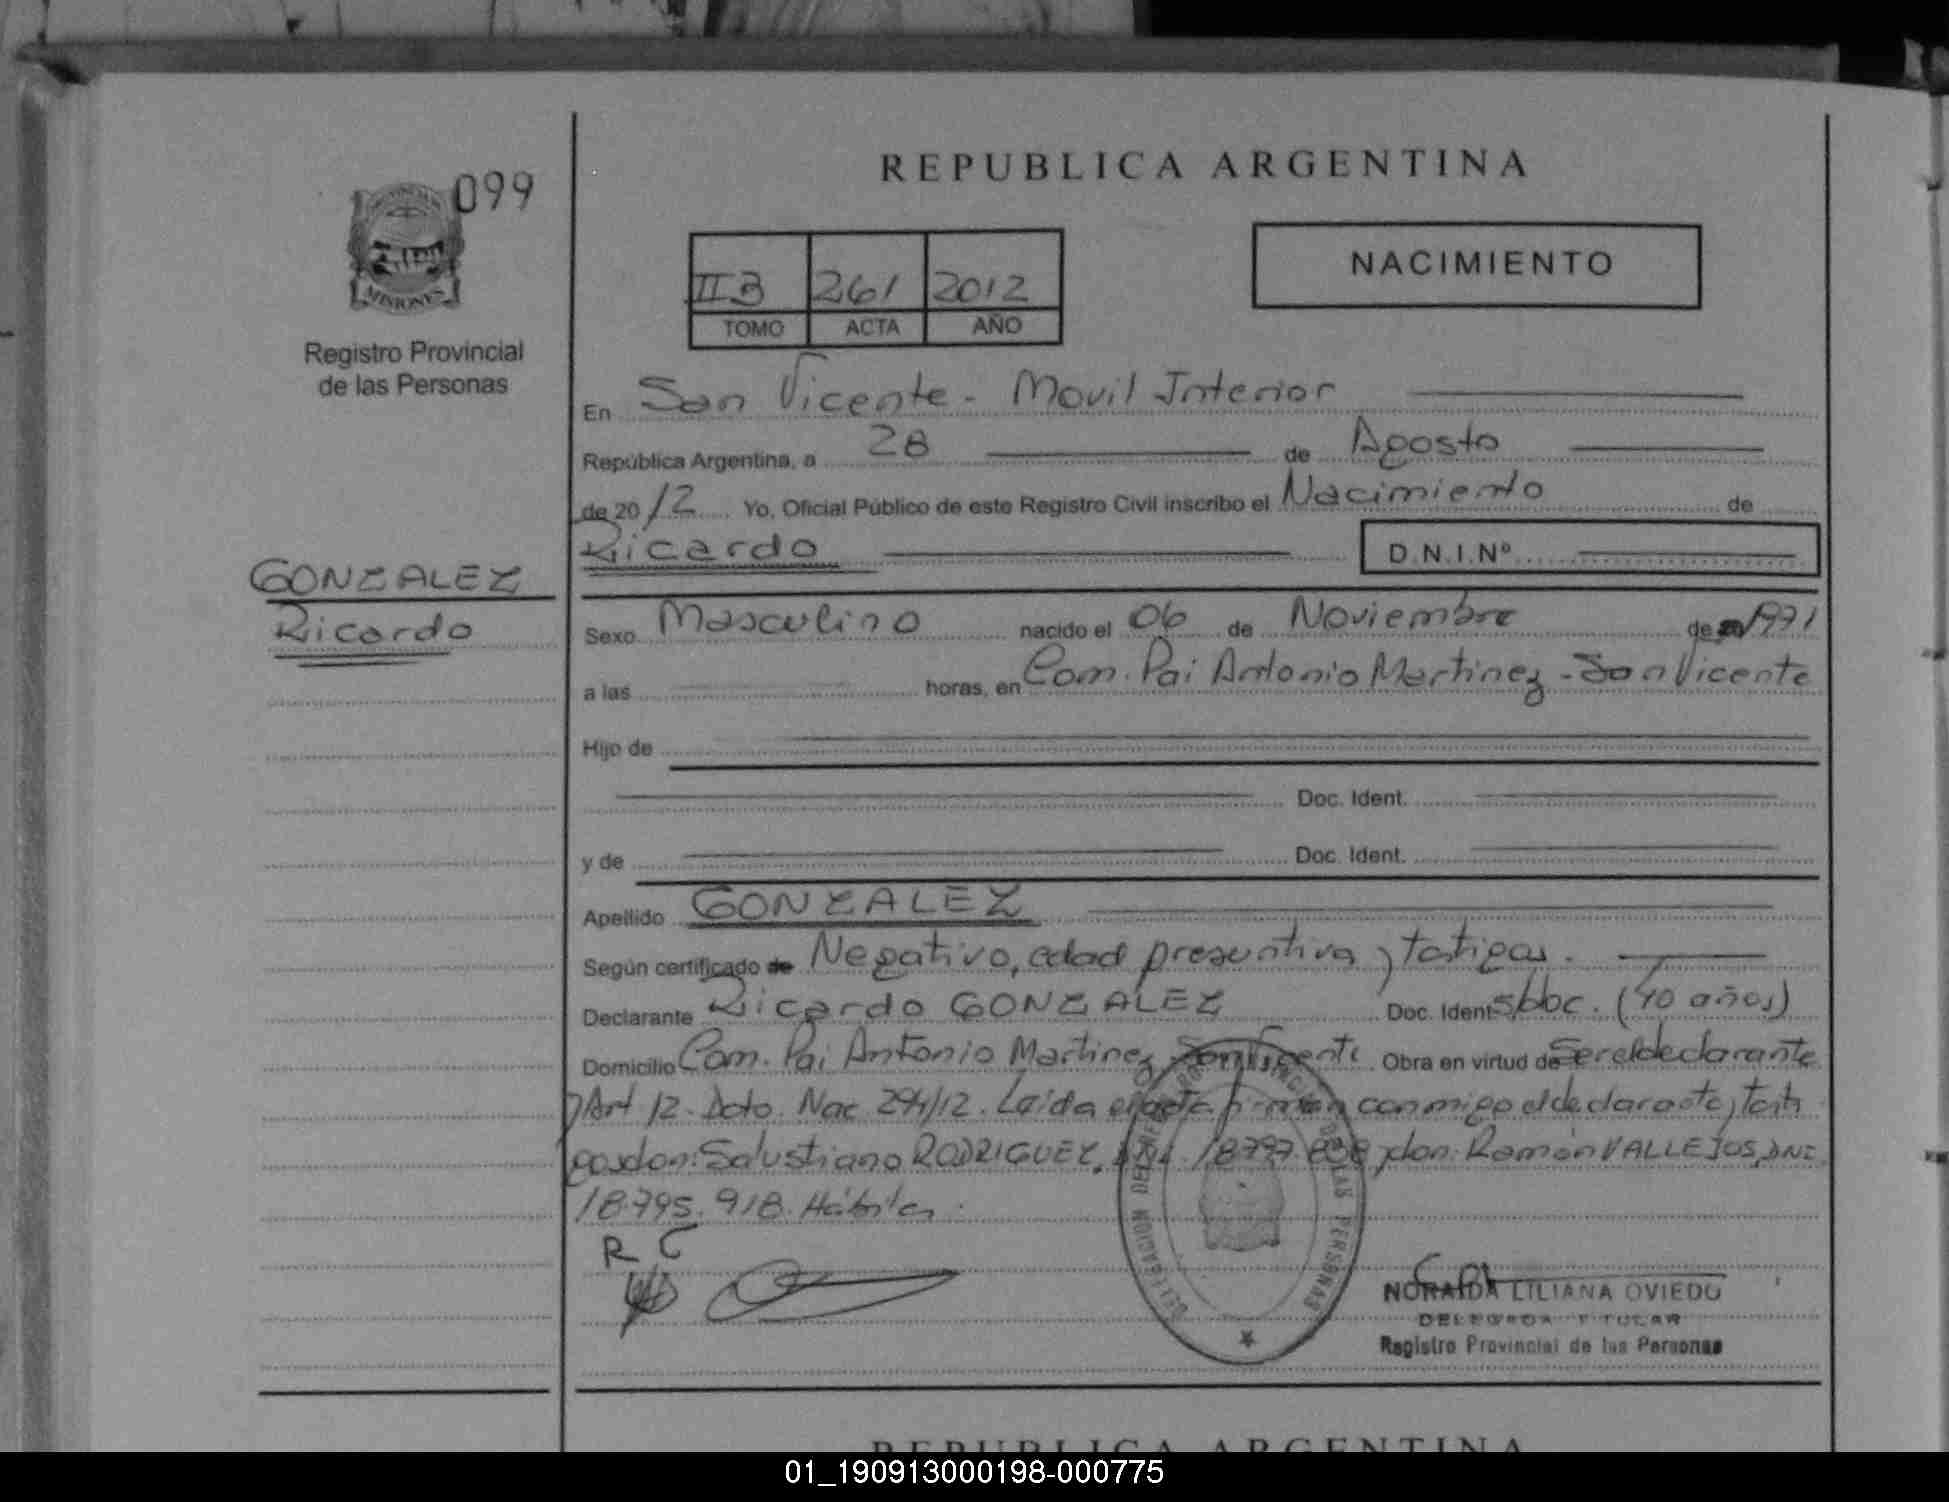 099
MISIONES
Registro Provincial
de las Personas
GONZALEZ
Ricardo
REPUBLICA ARGENTINA
NACIMIENTO
II B 261 2012
TOMO ACTA AÑO
En San Vicente - Movil Interior
República Argentina, a 28 de Agosto
de 2012 Yo, Oficial Público de este Registro Civil inscribo el Nacimiento de
Ricardo D.N.I.Nº
Sexo Masculino nacido el 06 de Noviembre de 1971
a las horas, en Com. Pai Antonio Martinez - San Vicente
Hijo de
Doc. Ident.
y de Doc. Ident.
Apellido GONZALEZ
Según certificado de Negativo, edad presuntiva y testigos.
Declarante Ricardo GONZALEZ Doc. Ident. s/doc. (40 años)
Domicilio Com. Pai Antonio Martinez San Vicente Obra en virtud de Ser el declarante
y Art 12. Dcto. Nac 294/12. Leída el acta firman conmigo el declarante y testi
gos don: Salustiano RODRIGUEZ, DNI. 18.797.808 y don: Ramón VALLEJOS, DNI
18.795.918. Hábiles.
R C
DELEGACION DE LAS PERSONAS
NORAIDA LILIANA OVIEDO
DELEGADA TITULAR
Registro Provincial de las Personas
REPUBLICA ARGENTINA
01_190913000198-000775